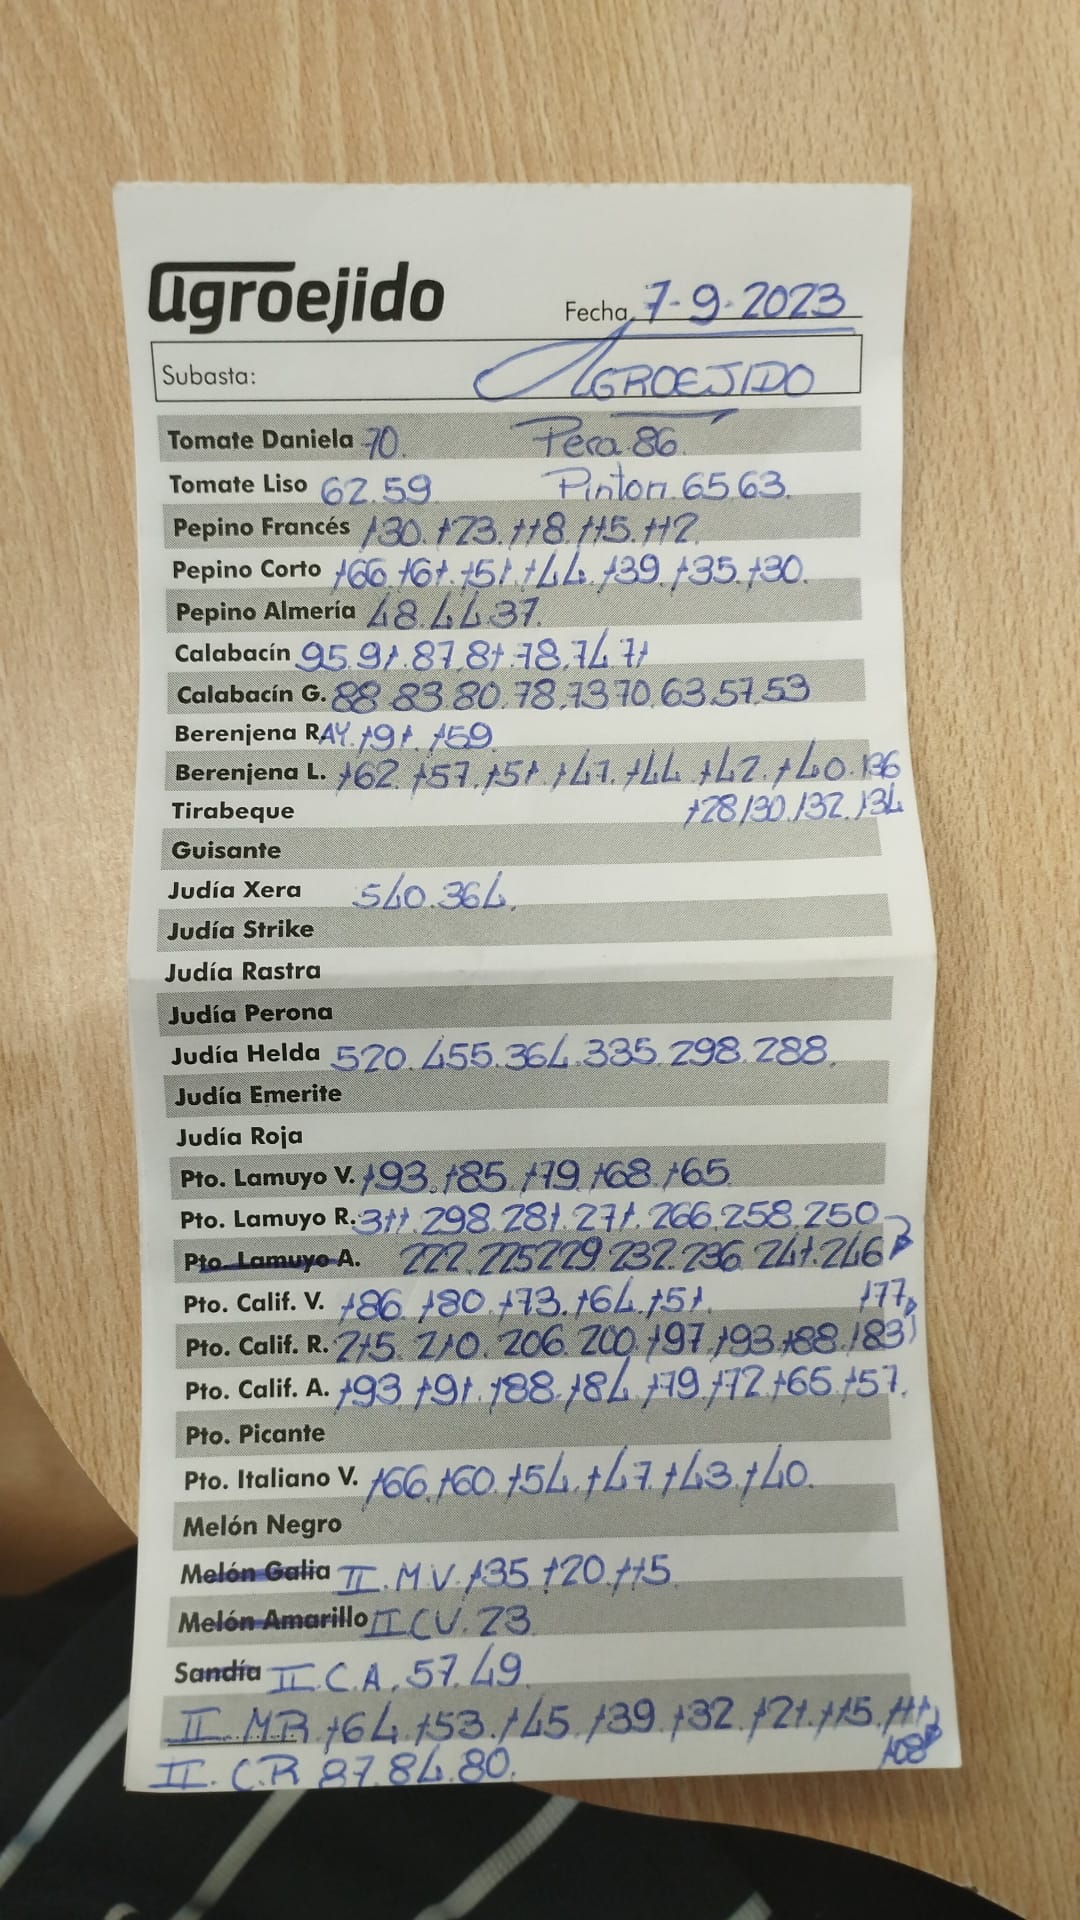 agroejido
Fecha 7-9-2023
Subasta: AGROEJIDO
Tomate Daniela 70. Pera 86.
Tomate Liso 62.59. Pinton.65.63.
Pepino Francés 130.123.118.115.112.
Pepino Corto 166.161.151.144.139.135.130.
Pepino Almería 48.44.37.
Calabacín 95.91.87.81.78.74.71
Calabacín G. 88.83.80.78.73.70.63.57.53
Berenjena RAY.191.159.
Berenjena L. 162.157.151.147.144.142.140.136
Tirabeque 128/130./132./134
Guisante
Judía Xera 540.364.
Judía Strike
Judía Rastra
Judía Perona
Judía Helda 520.455.364.335.298.288.
Judía Emerite
Judía Roja
Pto. Lamuyo V. 193.185.179.168.165.
Pto. Lamuyo R. 311.298.281.271.266.258.250
Pto. Lamuyo A. 222.225.229.232.236.241.246
Pto. Calif. V. 186.180.173.164.151. 177
Pto. Calif. R. 215.210.206.200.197.193.188.183
Pto. Calif. A. 193.191.188.184.179.172.165.157.
Pto. Picante
Pto. Italiano V. 166.160.154.147.143.140.
Melón Negro
Melón Galia II.M.V.135.120.115.
Melón Amarillo II CV.23.
Sandía II.C.A.57.49.
II.MR 164.153.145.139.132.121.115.111
108
II.C.R 87.84.80.